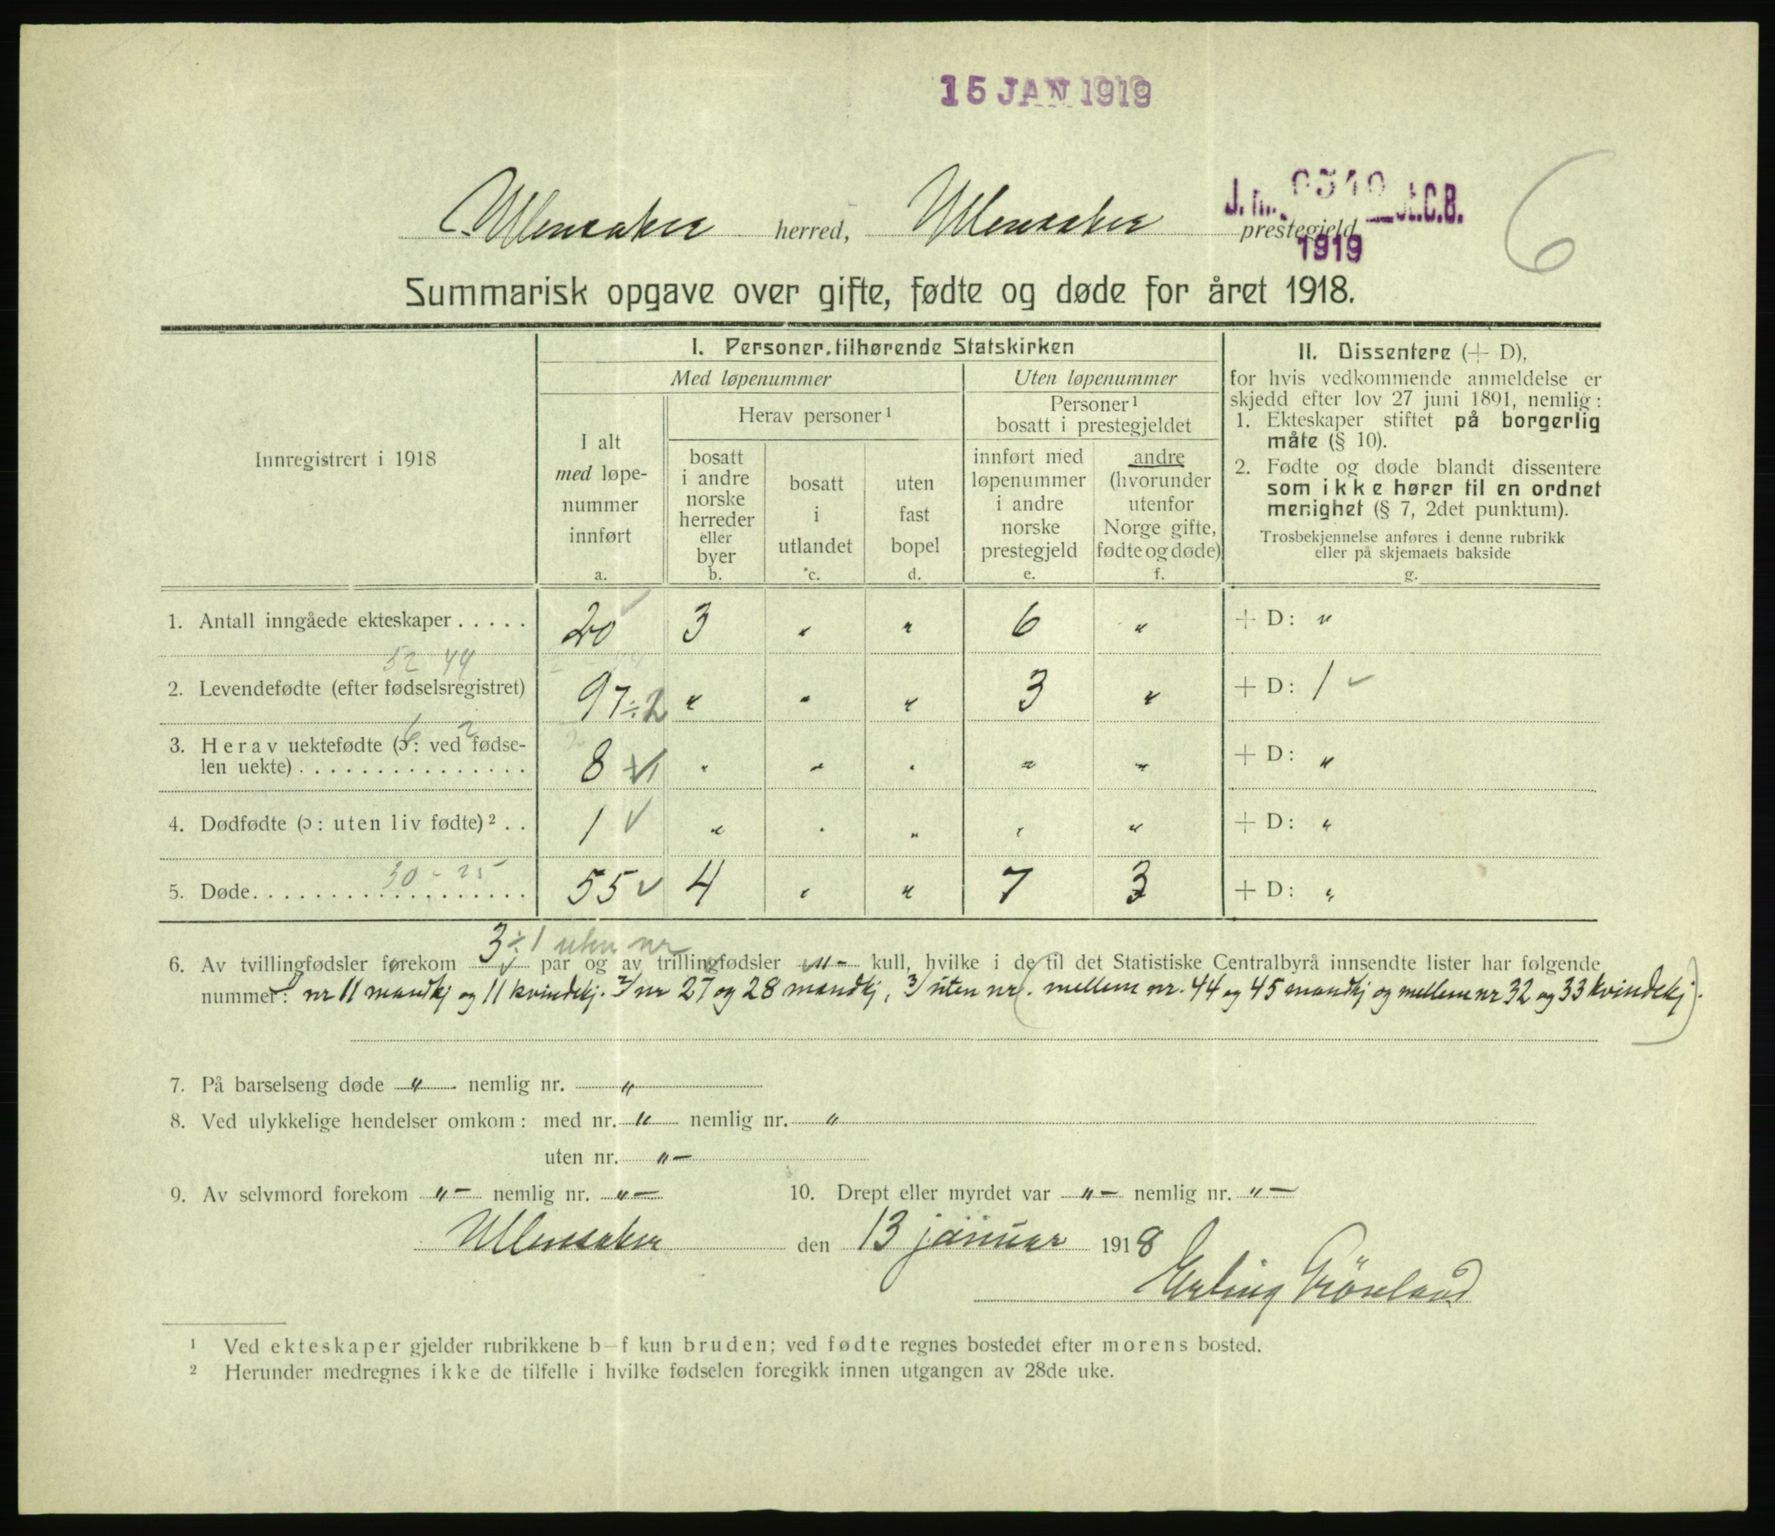 15 JAN 1919
Ullensaker herred, Ullensaker prestegjeld
J. nr. St.C.B.
1919
6
Summarisk opgave over gifte, fødte og døde for året 1918.
Innregistrert i 1918
I. Personer tilhørende Statskirken
Med løpenummer
Uten løpenummer
I alt
med løpe-
nummer
innført
a.
Herav personer ¹
bosatt
i andre
norske
herreder
eller
byer
b.
bosatt
i
utlandet
c.
uten
fast
bopel
d.
Personer ¹
bosatt i prestegjeldet
innført med
løpenummer
i andre
norske
prestegjeld
e.
andre
(hvorunder
utenfor
Norge gifte,
fødte og døde)
f.
II. Dissentere (+ D),
for hvis vedkommende anmeldelse er
skjedd efter lov 27 juni 1891, nemlig:
1. Ekteskaper stiftet på borgerlig
måte (§ 10).
2. Fødte og døde blandt dissentere
som ikke hører til en ordnet
menighet (§ 7, 2det punktum).
Trosbekjennelse anføres i denne rubrikk
eller på skjemaets bakside
g.
1. Antall inngåede ekteskaper . . . . . 20 ✓ 3 " " 6 " + D: "
52 44
2. Levendefødte (efter fødselsregistret) 97 ÷ 2 " " " 3 " + D: 1 ✓
6 2
3. Herav uektefødte (ɔ: ved fødse-
len uekte) . . . . . . . . . . . . . . . 8 ✓ " " " " " + D: "
4. Dødfødte (ɔ: uten liv fødte) ² . . 1 ✓ " " " " " + D: "
30 - 25
5. Døde. . . . . . . . . . . . . . . . . . 55 ✓ 4 " " 7 3 + D: "
3 ÷ 1 uten nr
6. Av tvillingfødsler forekom par og av trillingfødsler "- kull, hvilke i de til det Statistiske Centralbyrå innsendte lister har følgende
nummer: nr 11 mandkj og 11 kvindekj. 2/ nr 27 og 28 mandkj, 3/ uten nr. (mellem nr. 44 og 45 mandkj og mellem nr 32 og 33 kvindekj).
7. På barselseng døde " nemlig nr. "
8. Ved ulykkelige hendelser omkom: med nr. " nemlig nr. "
uten nr. "-
9. Av selvmord forekom "- nemlig nr. "- 10. Drept eller myrdet var "- nemlig nr. "-
Ullensaker den 13 januar 1918
Erling Grönland
¹ Ved ekteskaper gjelder rubrikkene b–f kun bruden; ved fødte regnes bostedet efter morens bosted.
² Herunder medregnes ikke de tilfelle i hvilke fødselen foregikk innen utgangen av 28de uke.